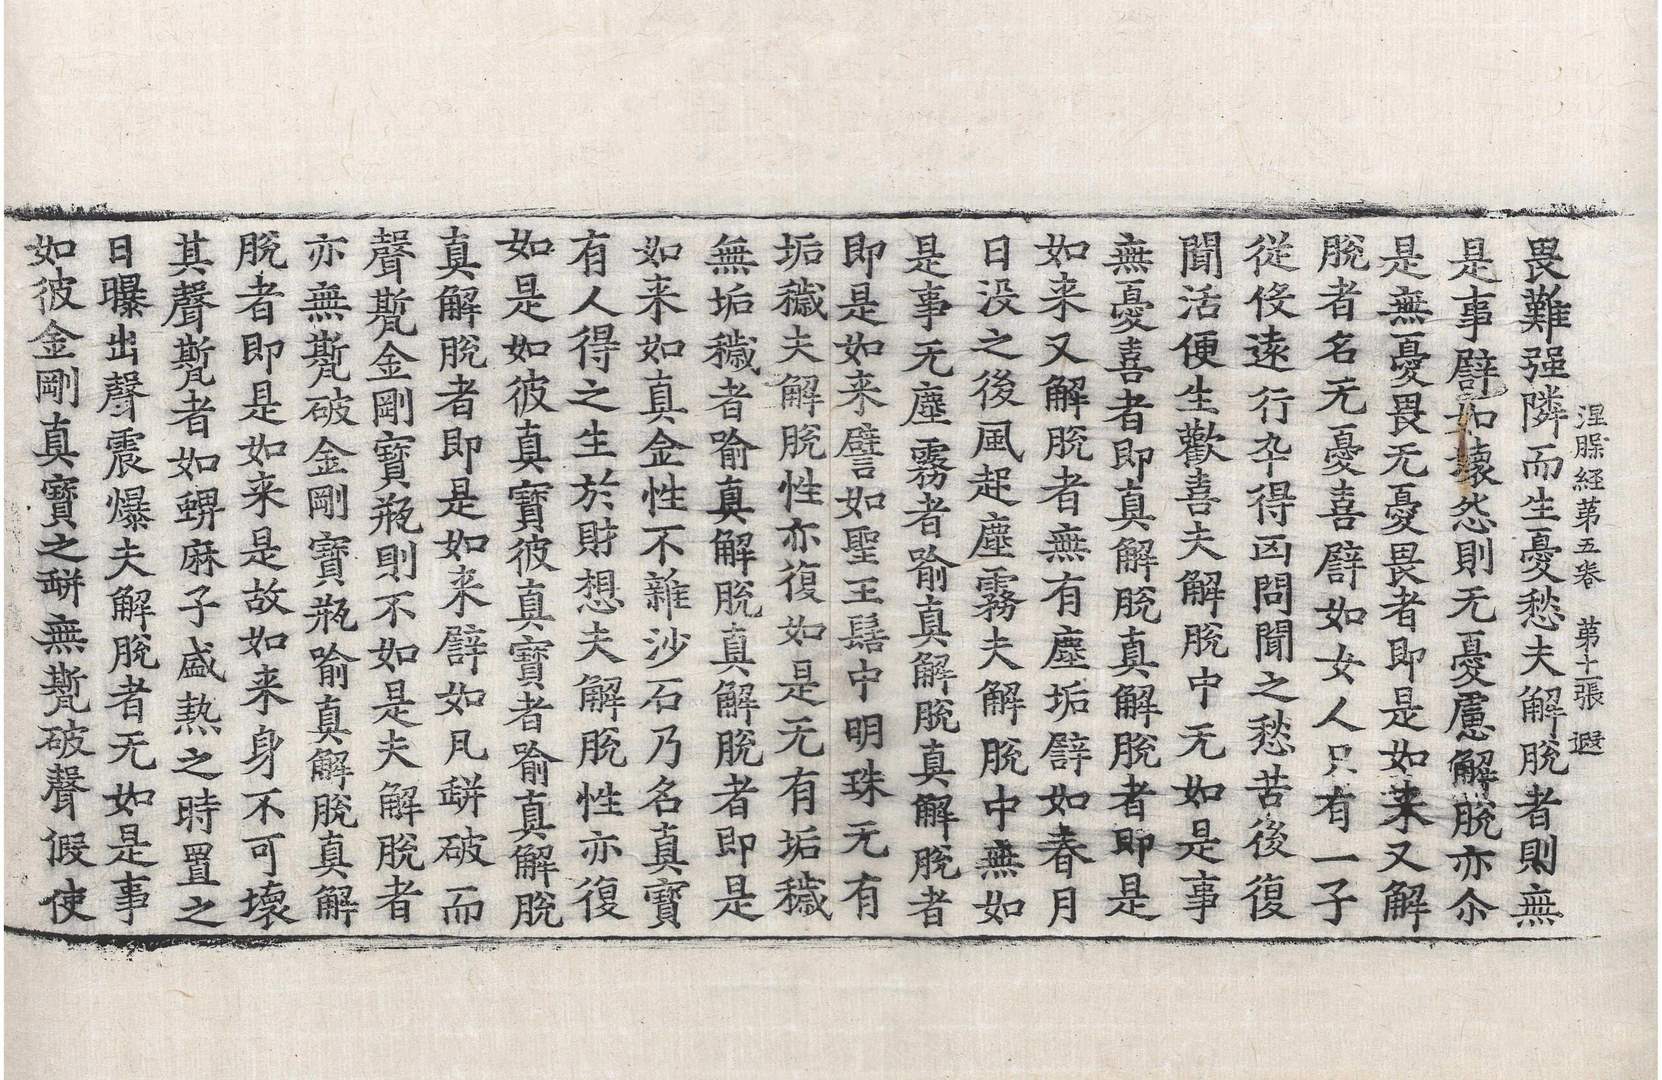 涅槃経苐五卷 苐十一張 遐
畏難强隣而生憂愁夫解脫者則無
是事譬如壞怨則无憂慮解脫亦尒
是無憂畏无憂畏者即是如来又解
脫者名无憂喜譬如女人只有一子
從伇遠行卒得凶問聞之愁苦後復
聞活便生歡喜夫解脫中无如是事
無憂喜者即真解脫真解脫者即是
如来又解脫者無有塵垢譬如春月
日没之後風起塵霧夫解脫中無如
是事无塵霧者喻真解脫真解脫者
即是如来譬如聖王髻中明珠无有
垢穢夫解脫性亦復如是无有垢穢
無垢穢者喻真解脫真解脫者即是
如来如真金性不雜沙石乃名真寶
有人得之生於財想夫解脫性亦復
如是如彼真寶彼真寶者喻真解脫
真解脫者即是如来譬如瓦缾破而
聲㽄金剛寶瓶則不如是夫解脫者
亦無㽄破金剛寶瓶喻真解脫真解
脫者即是如来是故如来身不可壞
其聲㽄者如蜱麻子盛熱之時置之
日曝出聲震爆夫解脫者无如是事
如彼金剛真寶之缾無㽄破聲假使